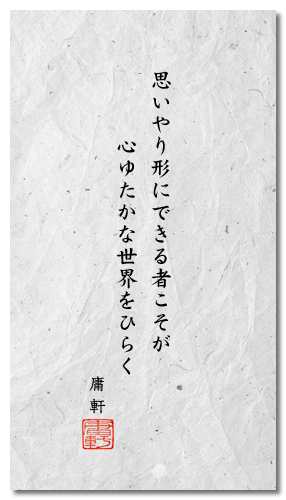 思いやり形にできる者こそが
心ゆたかな世界をひらく
庸軒
庸軒